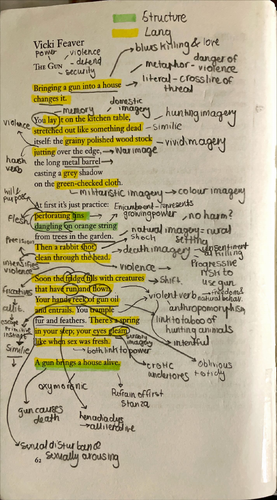 Structure
Lang
Vicki Feaver
Power
violence
- defend
- security
THE GUN
blurs killing & love
metaphor - danger of violence
literal - crossline of threat
Bringing a gun into a house
changes it.
memory
domestic imagery
You lay it on the kitchen table,
hunting imagery
stretched out like something dead
Similie
violence
itself: the grainy polished wood stock
vivid imagery
jutting over the edge,
harsh verb
the long metal barrel
War image
casting a grey shadow
on the green-checked cloth.
militaristic imagery → colour imagery
At first it's just practice:
perforating tins
growing power
no harm?
Flesh
dangling on orange string
natural imagery = rural setting
from trees in the garden.
Precision
Then a rabbit shot
death imagery
clean through the head.
intensifies violence
violence
Progressive
use gun
Soon the fridge fills with creatures
Shift
that have run and flown.
Your hands reek of gun oil
violent verb
natural behav.
and entrails. You trample
anthropomorphism
fur and feathers. There's a spring
link to taboo of hunting animals
in your step; your eyes gleam
intentful
like when sex was fresh.
Similie
both link to power
A gun brings a house alive.
erotic undertones
oxymoronic
Refrain of first Stanza
gun causes death
hendiadys
alliterative
sexual disturbance
sexually arousing